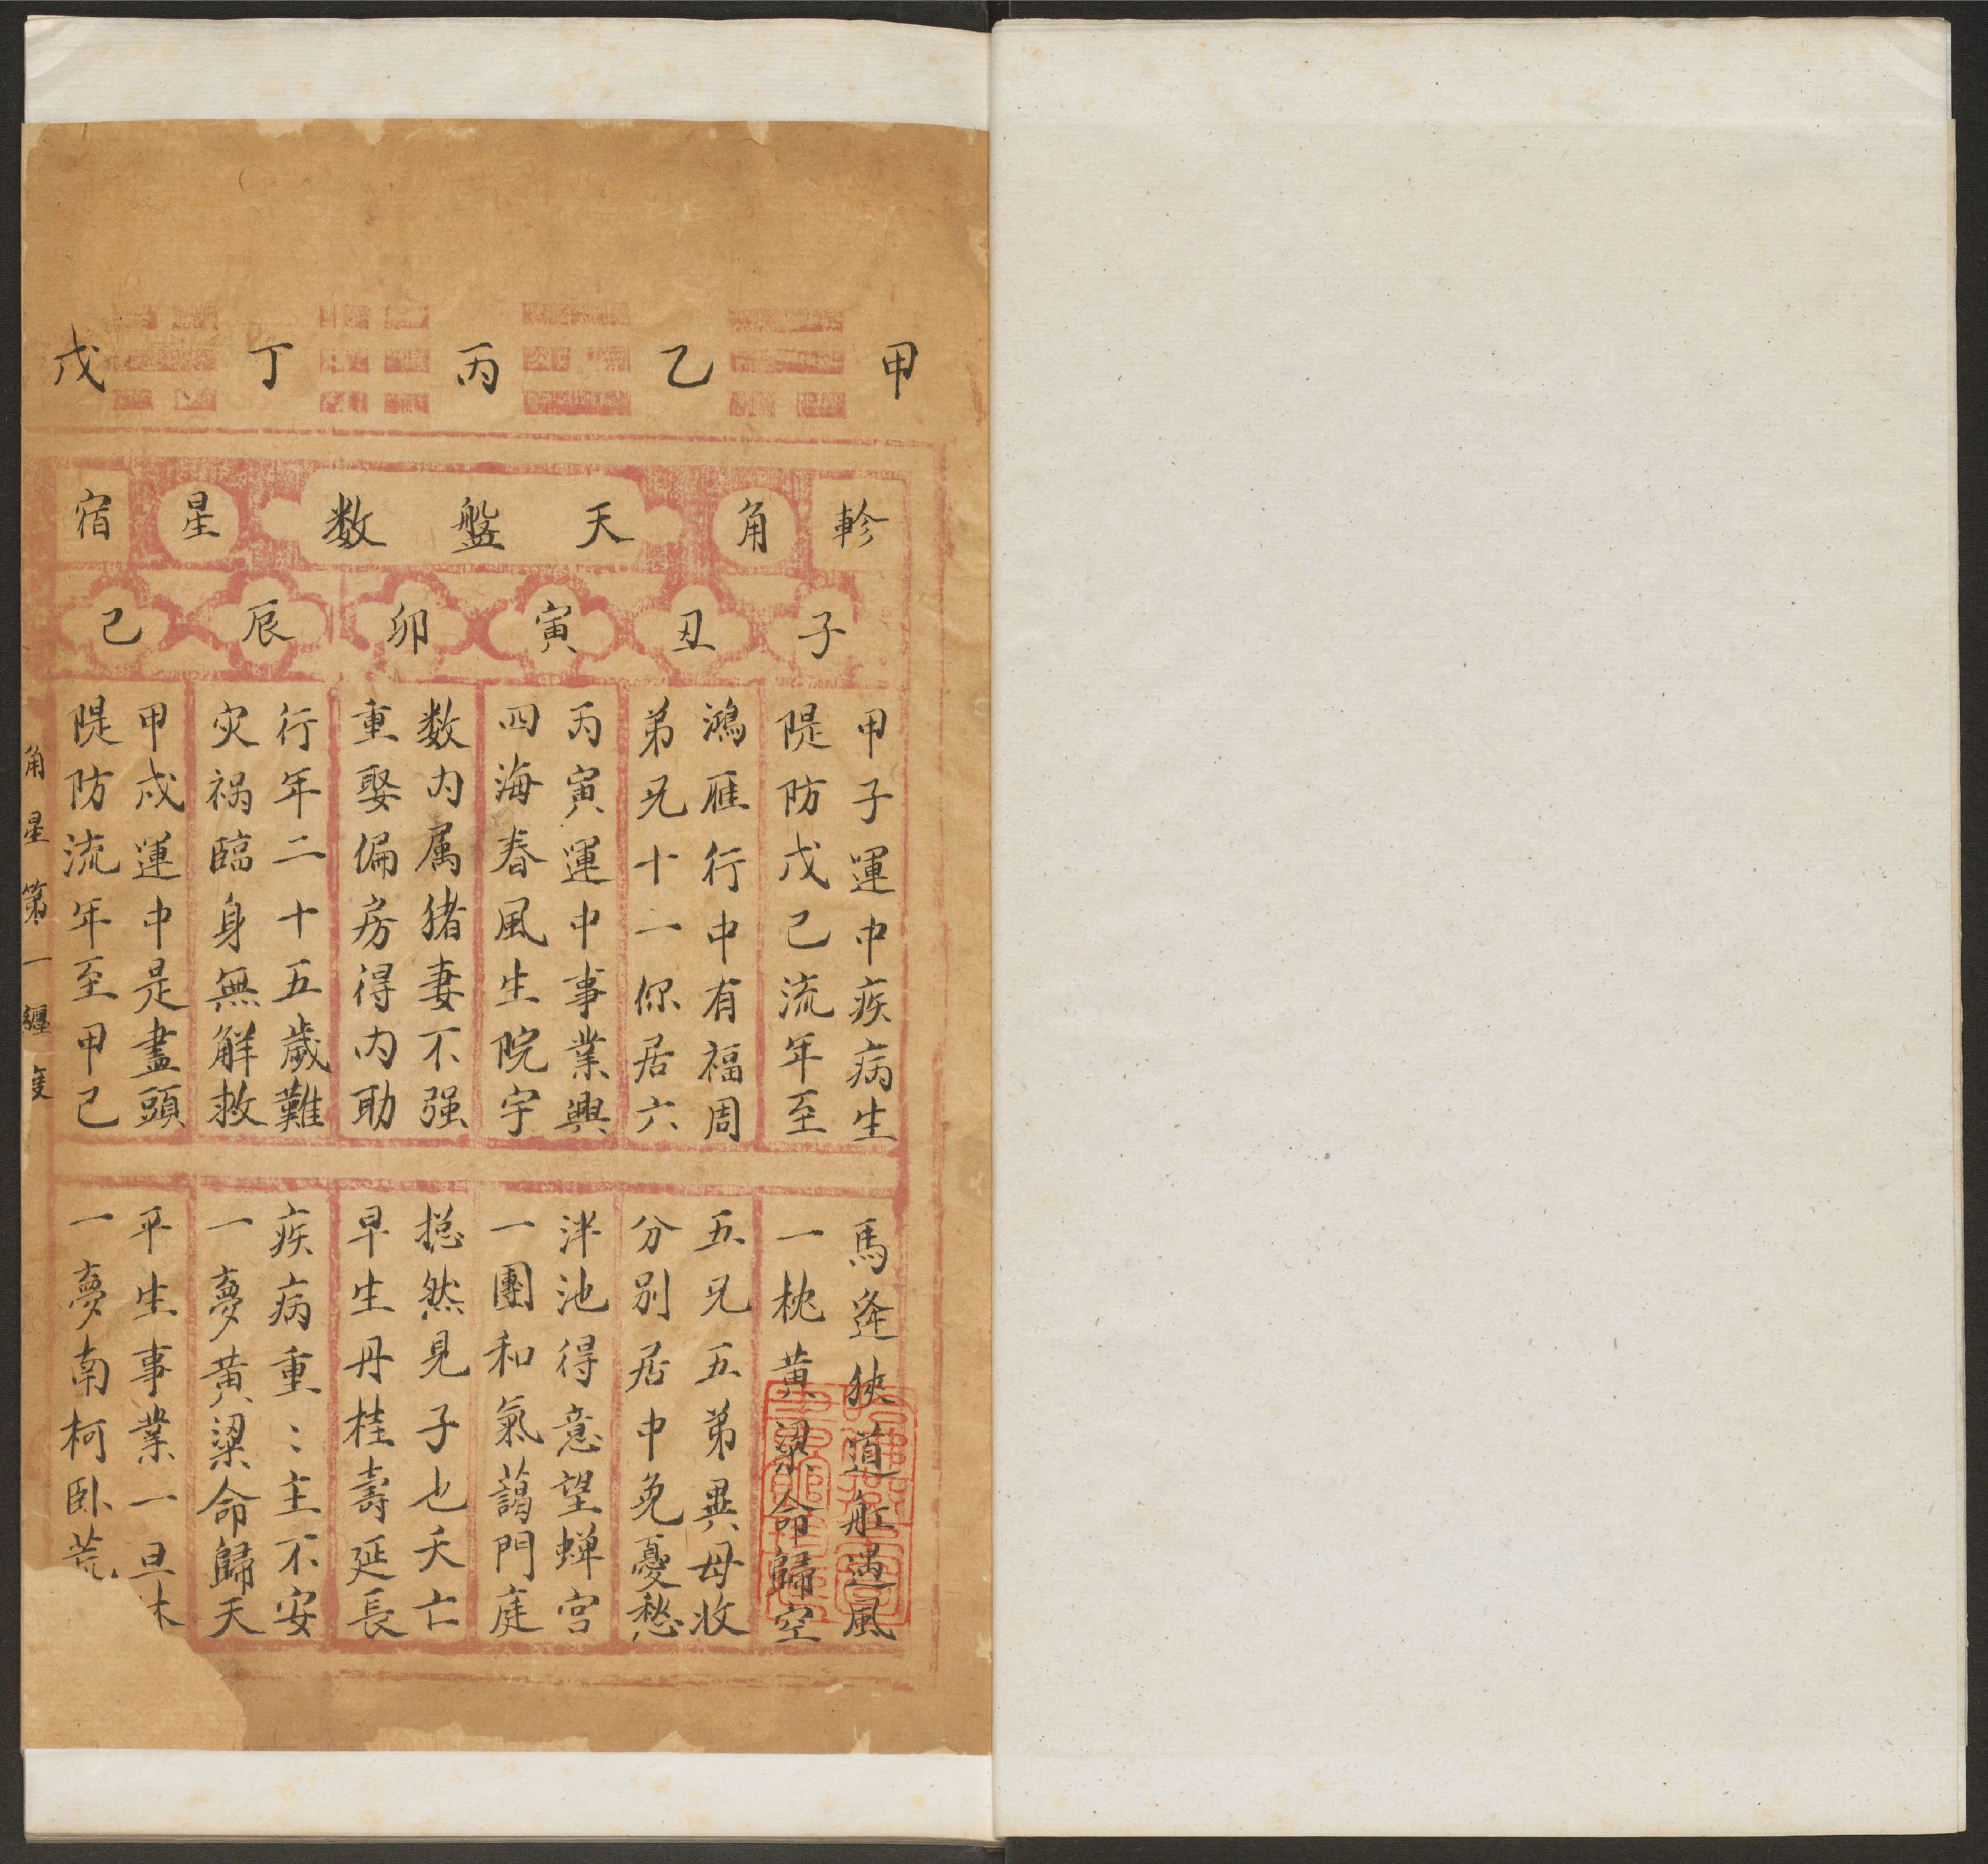 甲 乙 丙 丁 戊
軫 角 天盤数 星 宿
子 丑 寅 卯 辰 己
甲子運中疾病生
隄防戊己流年至
鴻雁行中有福周
弟兄十一你居六
丙寅運中事業興
四海春風生院宇
数内属猪妻不强
重娶偏房得内助
行年二十五歲難
灾祸臨身無觧救
甲戌運中是盡頭
隄防流年至甲己
馬逄狹道舡遇風
一枕黄梁命歸空
五兄五弟異母收
分别居中免憂愁
泮池得意望蟬宫
一團和氣藹門庭
捴然見子也夭亡
早生丹桂壽延長
疾病重〻主不安
一夢黄梁命歸天
平生事業一旦休
一夢南柯卧荒
角星第一纏度